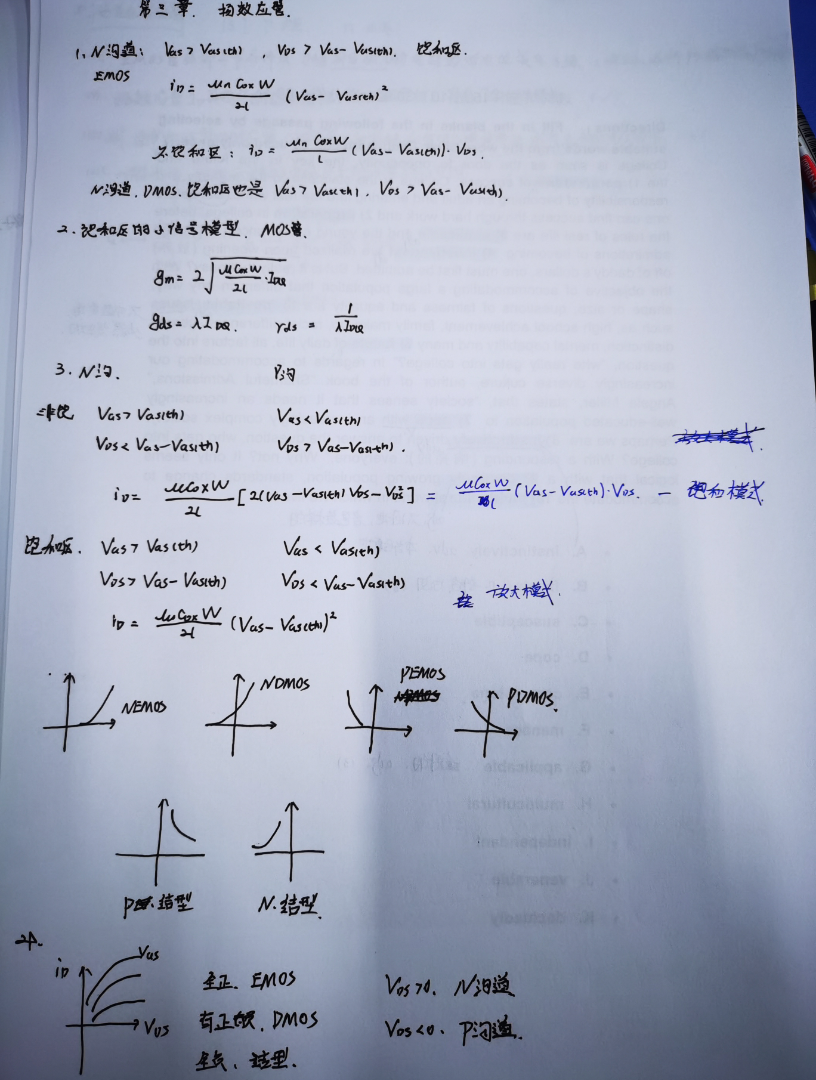 第三章. 场效应管.
1, N沟道: VGS > VGS(th) , VDS > VGS - VGS(th). 饱和区.
EMOS
iD = μn Cox W / 2l (VGS - VGS(th))²
不饱和区: iD = μn Cox W / l (VGS - VGS(th))·VDS.
N沟道. DMOS. 饱和区也是 VGS > VGS(th), VDS > VGS - VGS(th).
2. 饱和区的小信号模型. MOS管.
gm = 2√(μ Cox W / 2l · IDQ)
gds = λIDQ. rds = 1 / λIDQ
3. N沟. P沟
非饱 VGS > VGS(th) VGS < VGS(th)
VDS < VGS - VGS(th) VDS > VGS - VGS(th).
iD = μCoxW / 2l [2(VGS - VGS(th))VDS - VDS²] = μCox W / l (VGS - VGS(th))·VDS. — 饱和模式
饱和区. VGS > VGS(th) VGS < VGS(th)
VDS > VGS - VGS(th) VDS < VGS - VGS(th)
放大模式.
iD = μCox W / 2l (VGS - VGS(th))²
NEMOS NDMOS PEMOS PDMOS.
P.结型 N.结型.
4.
iD VGS VDS
全正. EMOS VDS>0. N沟道
有正有负. DMOS VDS<0. P沟道.
全负. 结型.